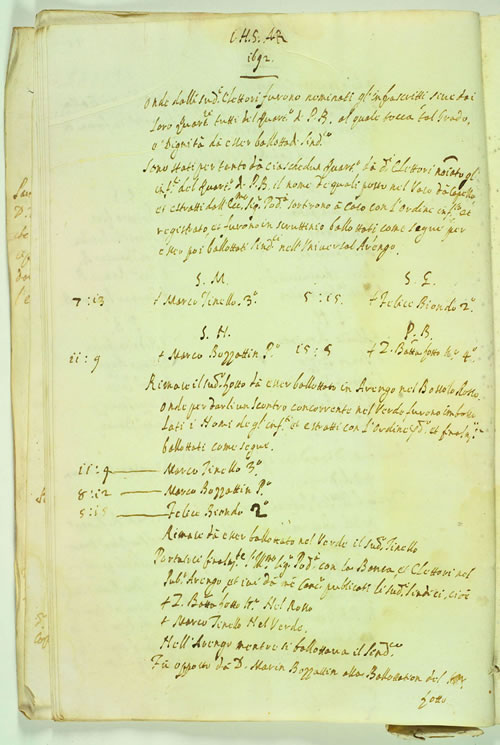 1692.
Onde dalli sud.i Elettori furono nominati gl'infrascritti
loro Quart.i tutti del Quart.o di P. B. al quale tocca tal Grado,
ò Dignità dà esser ballottadi Sind.o
Sono stati per tanto dà ciaschedun Quart.o dà d.i Elettori gl'
del Quart.o di P.B. il nome de quali posto nel Vaso
et estratti dall' Sig.r Pod.a sortirono à caso con l'Ordine inf.to et
registrato, et furono in scruttinio ballottati come segue per
esser poi ballottati Sind.ci nell'Universal Arengo.
S. M. S. E.
7 : 13 + Marco Tinello 3.o 5 : 15. + Felice Biondo 2.o
S. H. P. B.
11 : 9 + Marco Bozzattin P.o 15 : 5 + Z. Batta fotto 4.o
Rimase il sud.o fotto dà esser ballottato in Arengo nel Bossolo Rosso.
Onde per darli un scontro concorrente nel Verde furono
lati i Nomi de gl'inf.ti et estratti con l'Ordine
ballottati come segue.
11 : 9 Marco Tinello 3.o
8 : 12 Marco Bozzattin P.o
5 : 15 Felice Biondo 2.o
Rimase dà esser ballottato nel Verde il sud.o Tinello
Sig.r Pod.a con la Banca, et Elettori nel
Pub.o Arengo, et ivi publicati li sud.i Sindici, cioè
+ Z. Batta fotto Nel Rosso
+ Marco Tinello Nel Verde.
Nell'Arengo mentre si ballottava il Sind.co
Fù opposto dà D. Marin Bozzattin alla Ballottation del
fotto